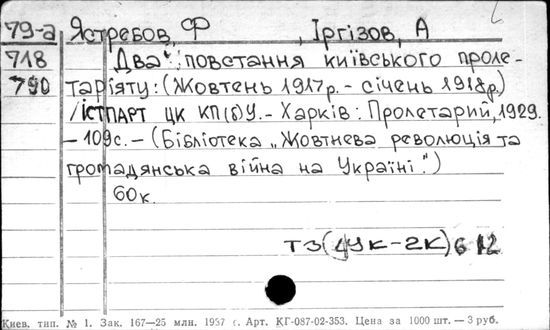 79-а Ястребов, Ф , Іргізов, А
718 Два повстання київського проле-
790 таріяту: (Жовтень 1917р. - січень 1918р.)
/ІСТПАРТ ЦК КП(б)У. - Харків: Пролетарий, 1929.
- 109с. - (Бібліотека „Жовтнева революція та
громадянська війна на Україні.")
60к.
ТЗ(4УК-2К)6 12
Киев. тип. № 1. Зак. 167—25 млн. 1957 г. Арт. КГ-087-02-353. Цена за 1000 шт. — 3 руб.